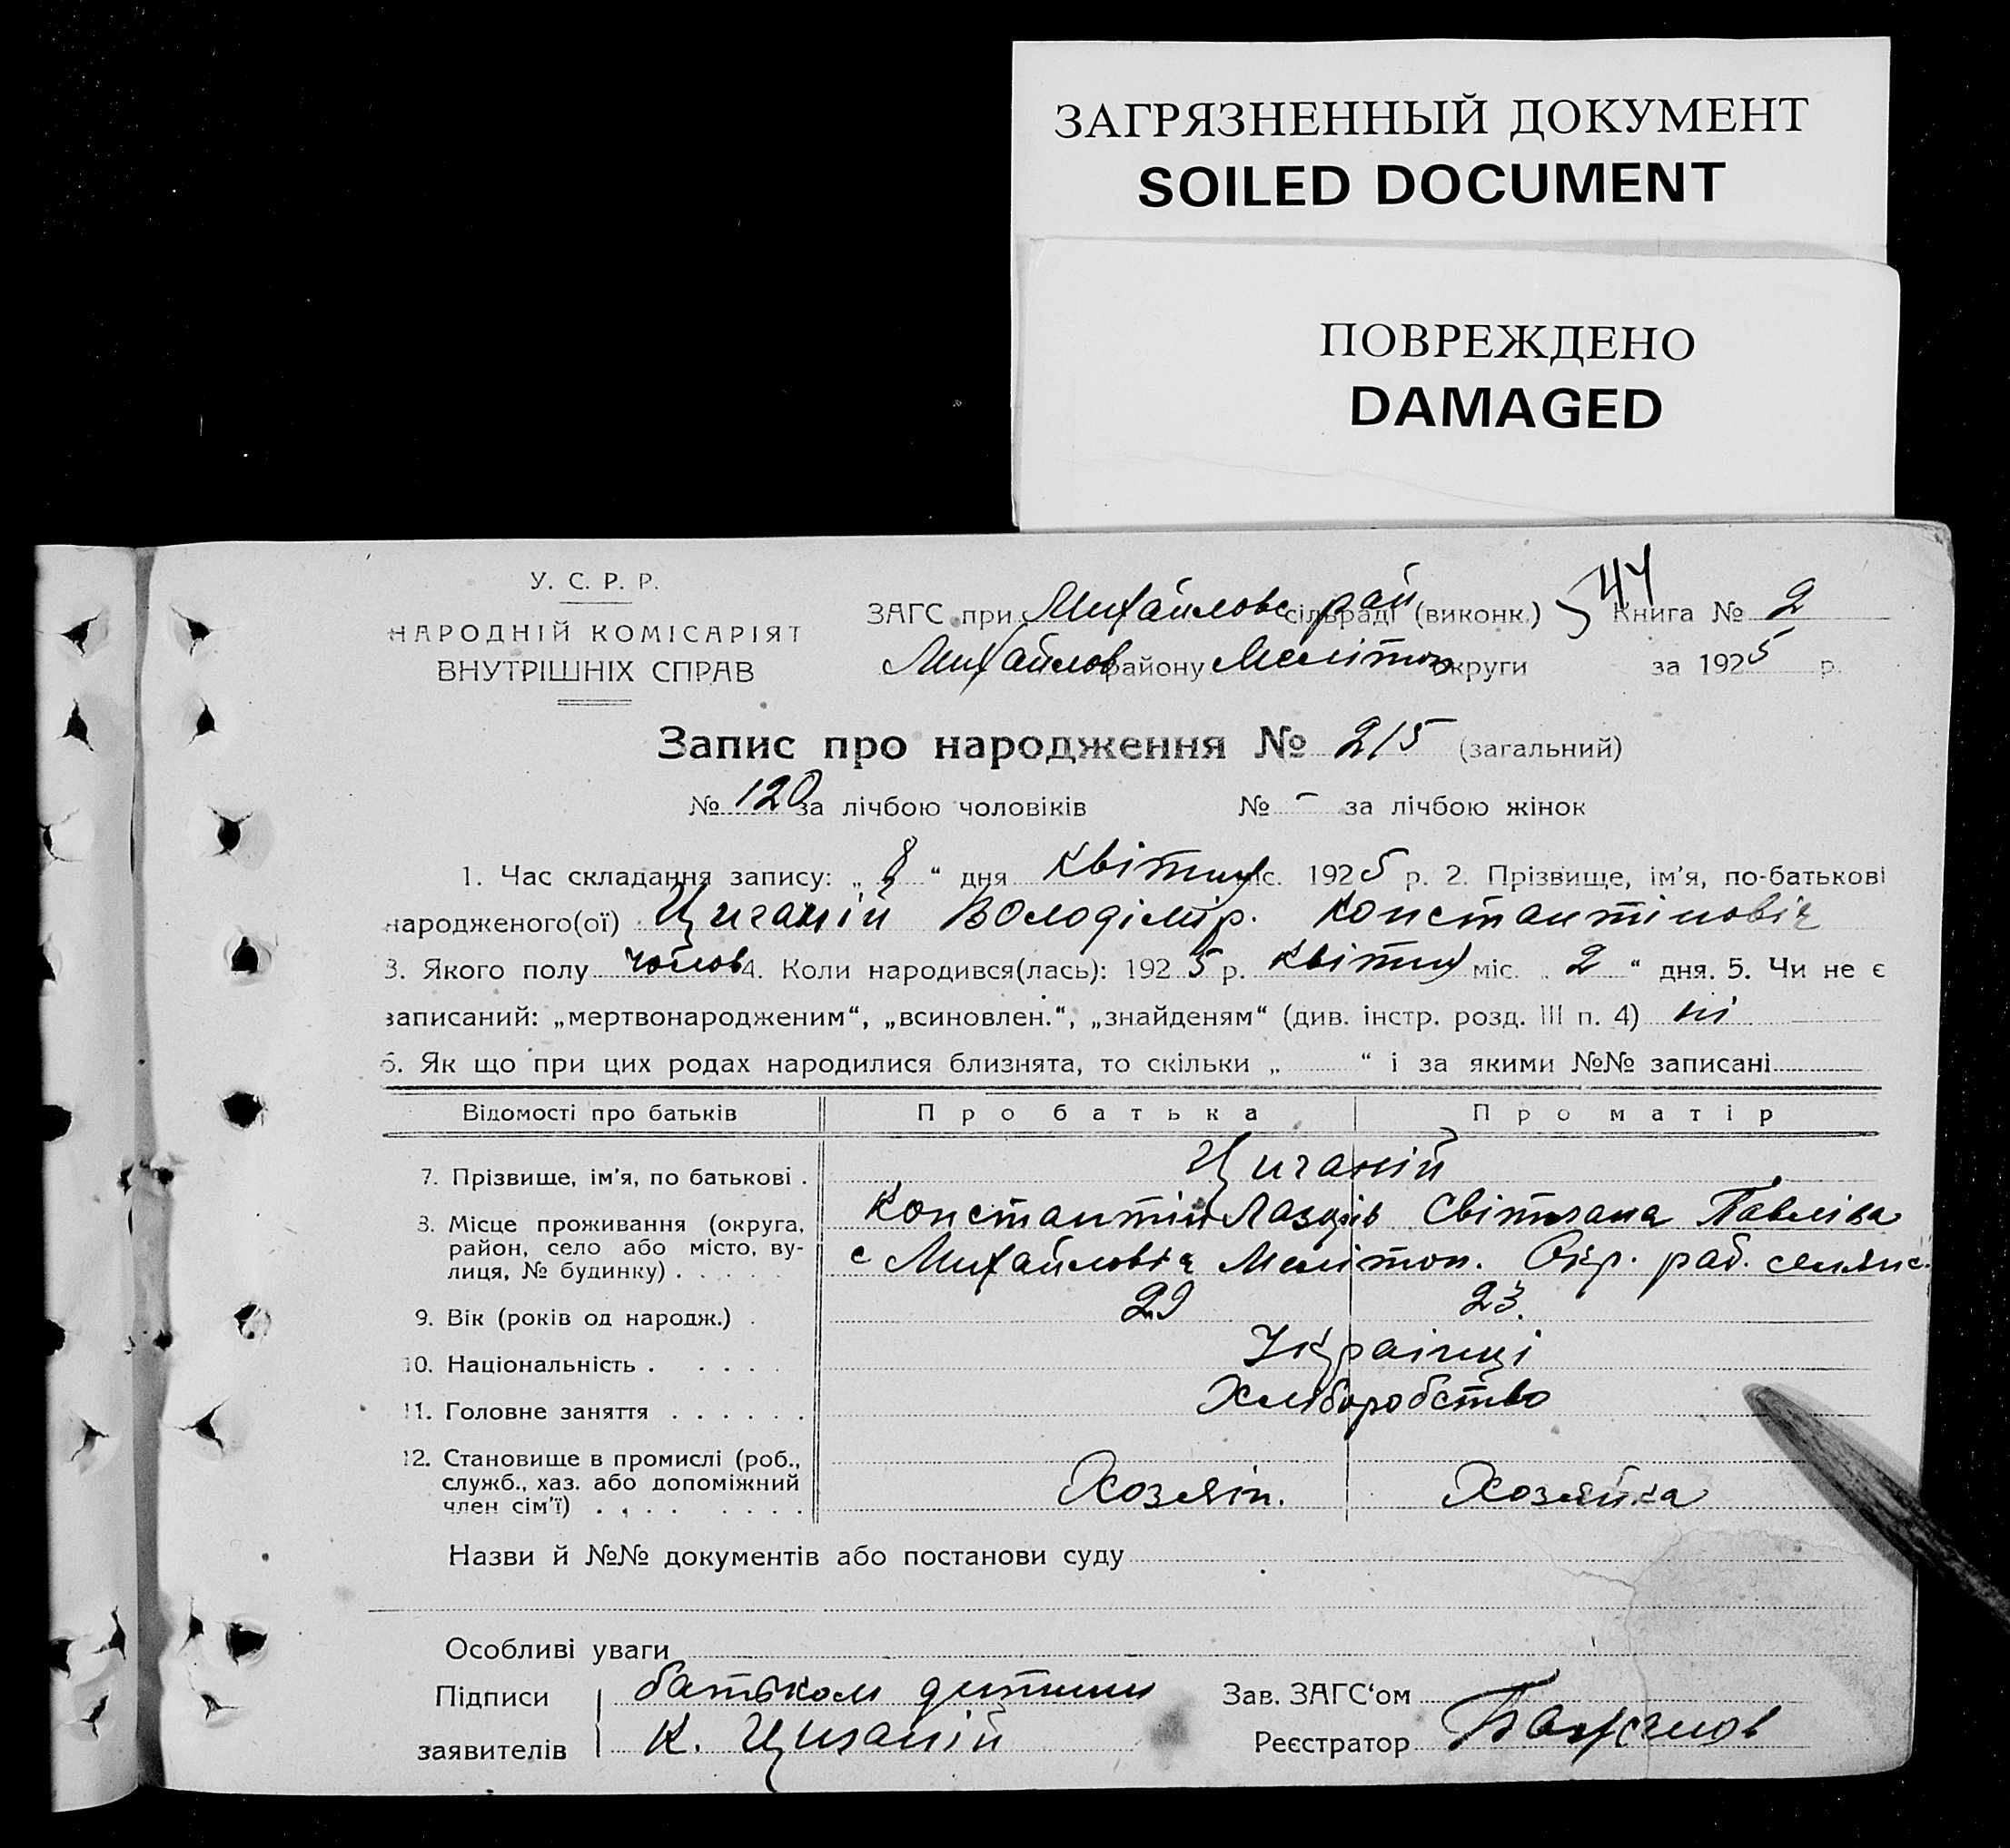 ЗАГРЯЗНЕННЫЙ ДОКУМЕНТ
SOILED DOCUMENT
ПОВРЕЖДЕНО
DAMAGED
У. С. Р. Р.
НАРОДНІЙ КОМІСАРІЯТ
ВНУТРІШНІХ СПРАВ
ЗАГС при Михайловс сільраді рай (виконк.) Книга № 2
Михайлов району Меліtоп округи за 1925 р.
Запис про народження № 215 (загальний)
№ 120 за лічбою чоловіків № - за лічбою жінок
1. Час складання запису: „ 8 “ дня квітня міс. 1925 р. 2. Прізвище, ім'я, по-батькові
народженого(ої) Циганій Володімір. Константіновіч
3. Якого полу чолов 4. Коли народився(лась): 1925 р. квітня міс. „ 2 “ дня. 5. Чи не є
записаний: „мертвонародженим“, „всиновлен.“, „знайденям“ (див. інстр. розд. III п. 4) ні
6. Як що при цих родах народилися близнята, то скільки „ “ і за якими №№ записані
Відомості про батьків Про батька Про матір
7. Прізвище, ім'я, по батькові . Циганій
Константін Світлана Павліва
8. Місце проживання (округа,
район, село або місто, ву-
лиця, № будинку) . . . . . с Михайловка Меліtоп. Окр. рад. селянс.
9. Вік (років од народж.) . 29 23.
10. Національність . . . . . Українці
11. Головне заняття . . . . . . Хліборобство
12. Становище в промислі (роб.,
служб., хаз. або допоміжний
член сім'ї) . . . . . . . . Хозяін. Хозяйка
Назви й №№ документів або постанови суду
Особливі уваги
Підписи батьком дитини Зав. ЗАГС‘ом
заявителів К. Циганій Реєстратор